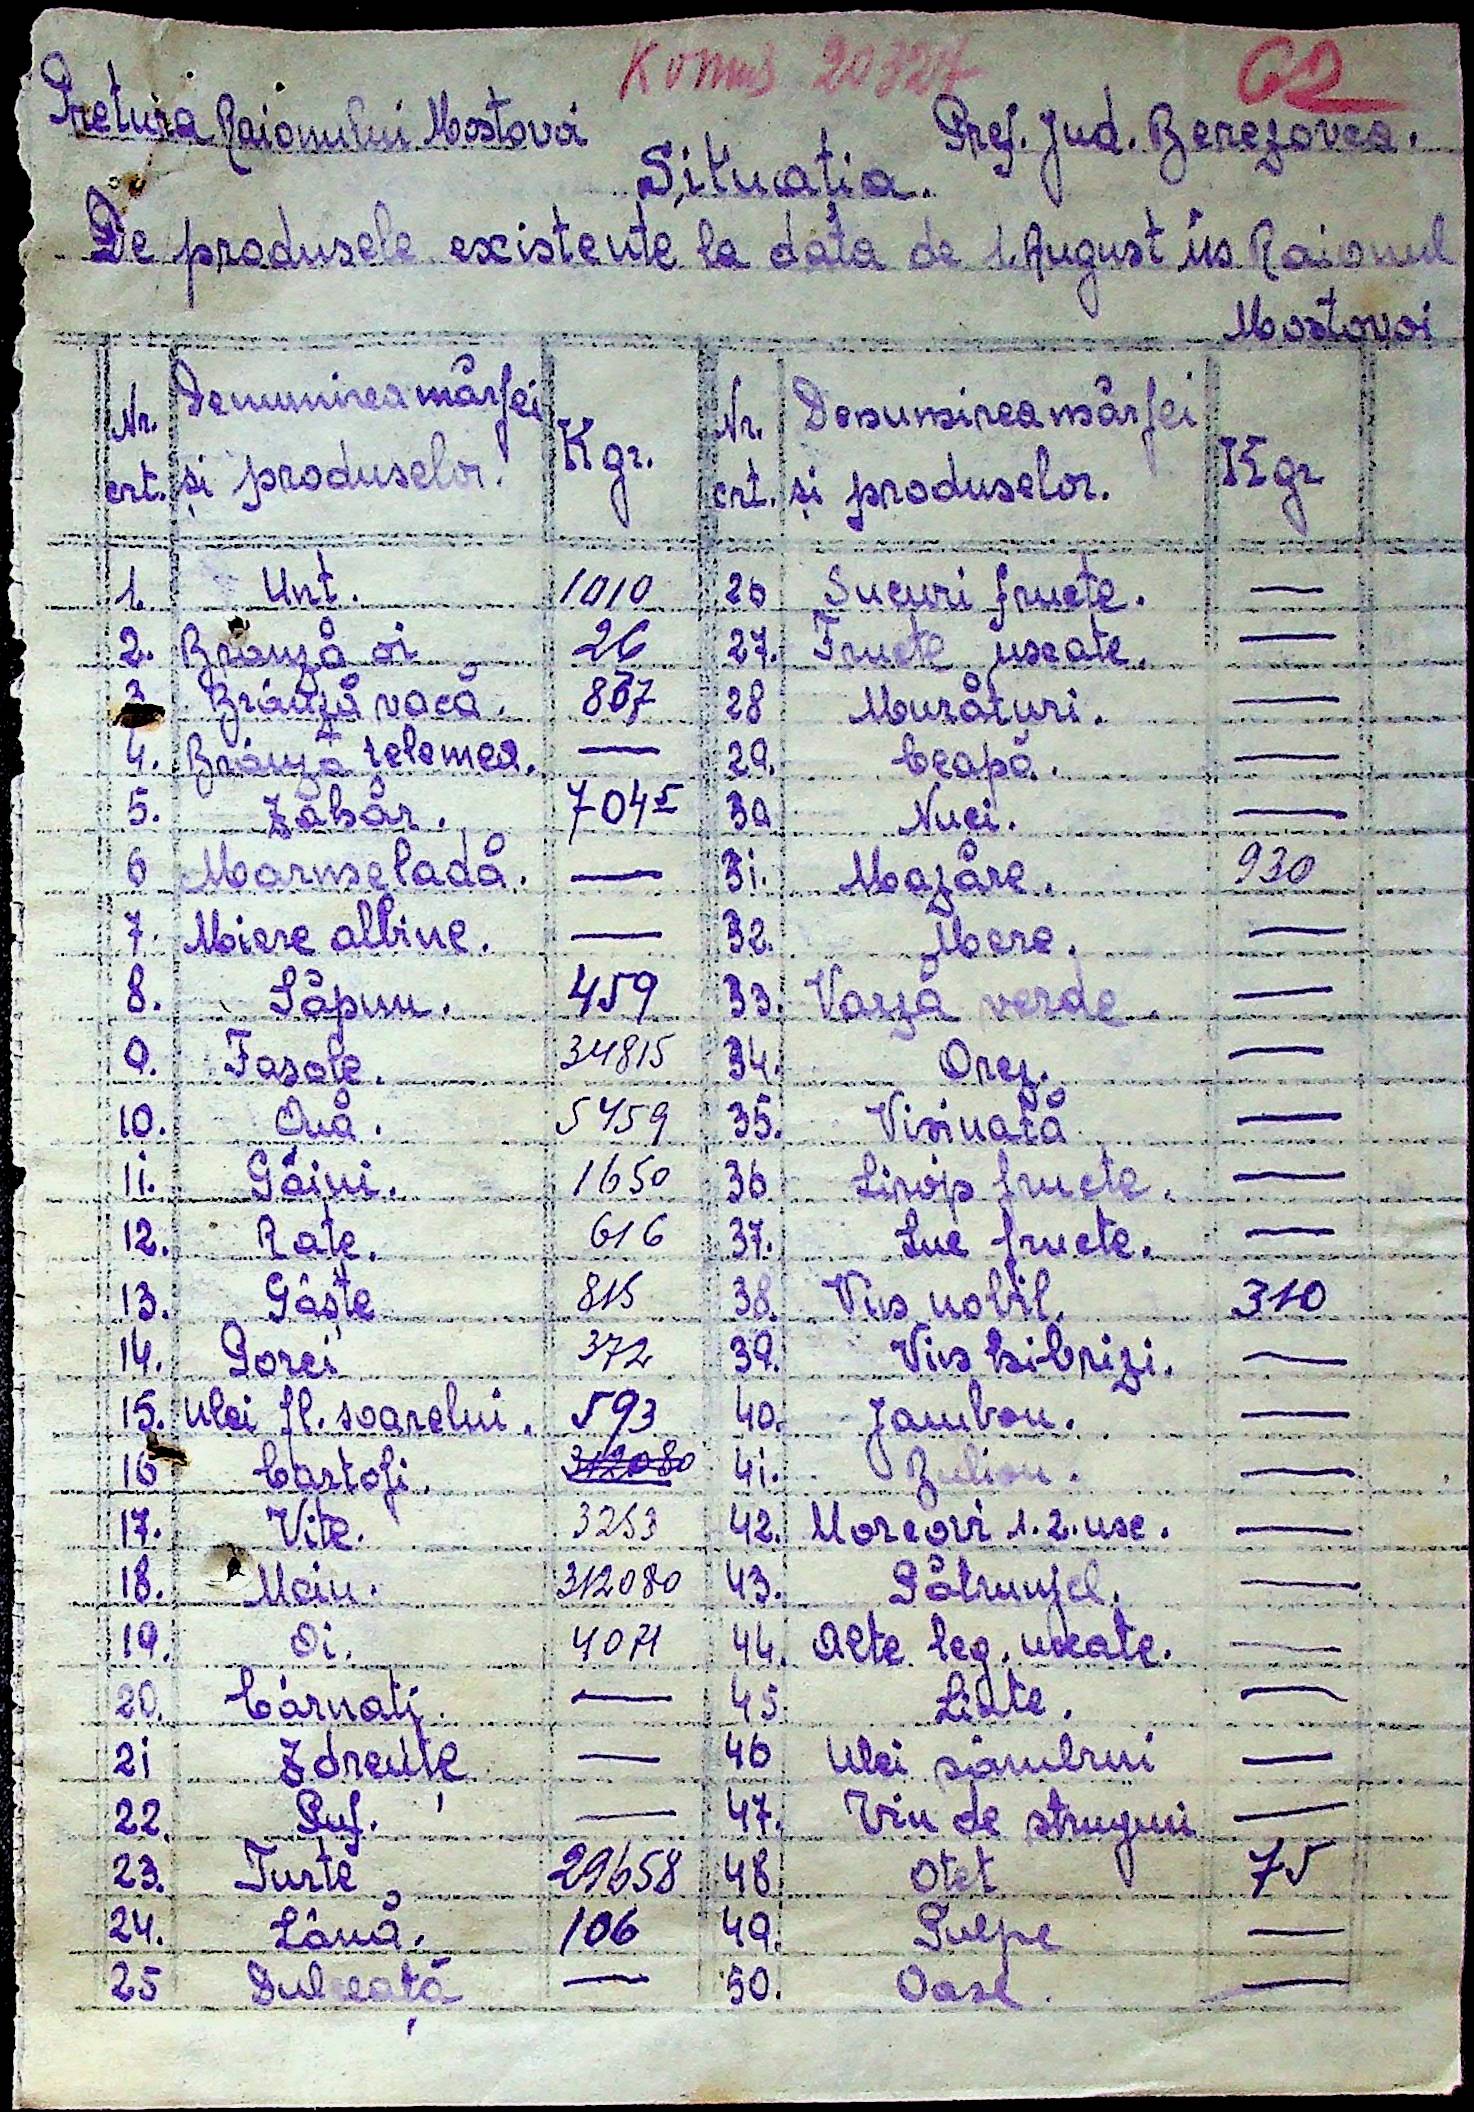 62
Pretura Raionului Mostovoi Pref. Jud. Berezovca.
Situația.
De produsele existente la data de 1. August în Raionul
Mostovoi
Nr. crt. Denumirea mårfei și produselor. Kgr. Nr. crt. Denumirea mårfei și produselor. Kgr
1. Unt. 1010 26 Sucuri fructe. —
2. Brânză oi 26 27. Fructe uscate. —
3. Brânză vacă. 867 28 Muråturi. —
4. Brânză telemea. — 29. Ceapă. —
5. Zåhår. 7045 30 Nuci. —
6 Marmeladå. — 31. Mazåre. 930
7. Miere albine. — 32. Mere. —
8. Såpun. 459 33. Varză verde. —
9. Fasole. 34815 34. Orez. —
10. Ouå. 5459 35. Visinată —
11. Gåini. 1650 36 Sirop fructe. —
12. Rațe. 616 37. Suc fructe. —
13. Gâște 815 38. Vin nobil. 310
14. Porci 372 39. Vin hibrizi. —
15. Ulei fl. soarelui. 593 40. Jambon. —
16 Cartofi. 312080 41. Bulion. —
17. Vite. 3253 42. Morcovi 1. 2. usc. —
18. Meiu. 312080 43. Påtrunjel. —
19. Oi. 4071 44. Alte leg. uscate. —
20. Cârnați. — 45. Linte. —
21 Zdrențe — 46 Ulei sâmburi —
22. Puf. — 47. Vin de struguri —
23. Turte 29658 48 Otet 75
24. Lână. 106 49. Pulpe —
25 Dulceață — 50. Oase. —